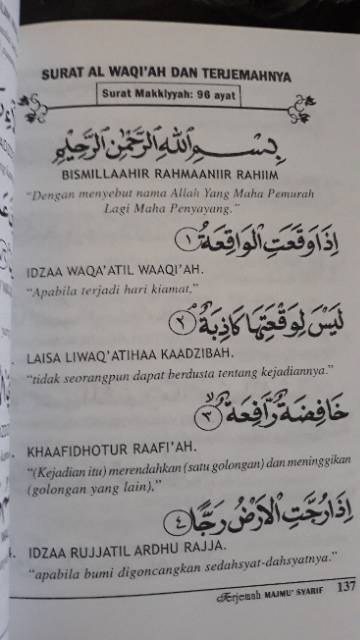 SURAT AL WAQI'AH DAN TERJEMAHNYA
Surat Makkiyyah: 96 ayat
بِسْمِ اللّٰهِ الرَّحْمٰنِ الرَّحِيْمِ
BISMILLAAHIR RAHMAANIIR RAHIIM
"Dengan menyebut nama Allah Yang Maha Pemurah
Lagi Maha Penyayang."
اِذَا وَقَعَتِ الْوَاقِعَةُ ۙ ١
IDZAA WAQA'ATIL WAAQI'AH.
"Apabila terjadi hari kiamat,"
لَيْسَ لِوَقْعَتِهَا كَاذِبَةٌ ۘ ٢
LAISA LIWAQ'ATIHAA KAADZIBAH.
"tidak seorangpun dapat berdusta tentang kejadiannya."
خَافِضَةٌ رَّافِعَةٌ ۙ ٣
KHAAFIDHOTUR RAAFI'AH.
"(Kejadian itu) merendahkan (satu golongan) dan meninggikan
(golongan yang lain),"
اِذَا رُجَّتِ الْاَرْضُ رَجًّا ۙ ٤
4. IDZAA RUJJATIL ARDHU RAJJA.
"apabila bumi digoncangkan sedahsyat-dahsyatnya."
Terjemah MAJMU' SYARIF 137